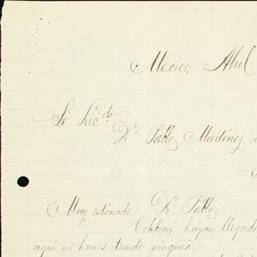 Mexico, Abril
Sr Licdo
Dn. Pablo Martinez
Muy estimado Dn Pablo,
hayan llegado
aqui no hemos tenido ninguna